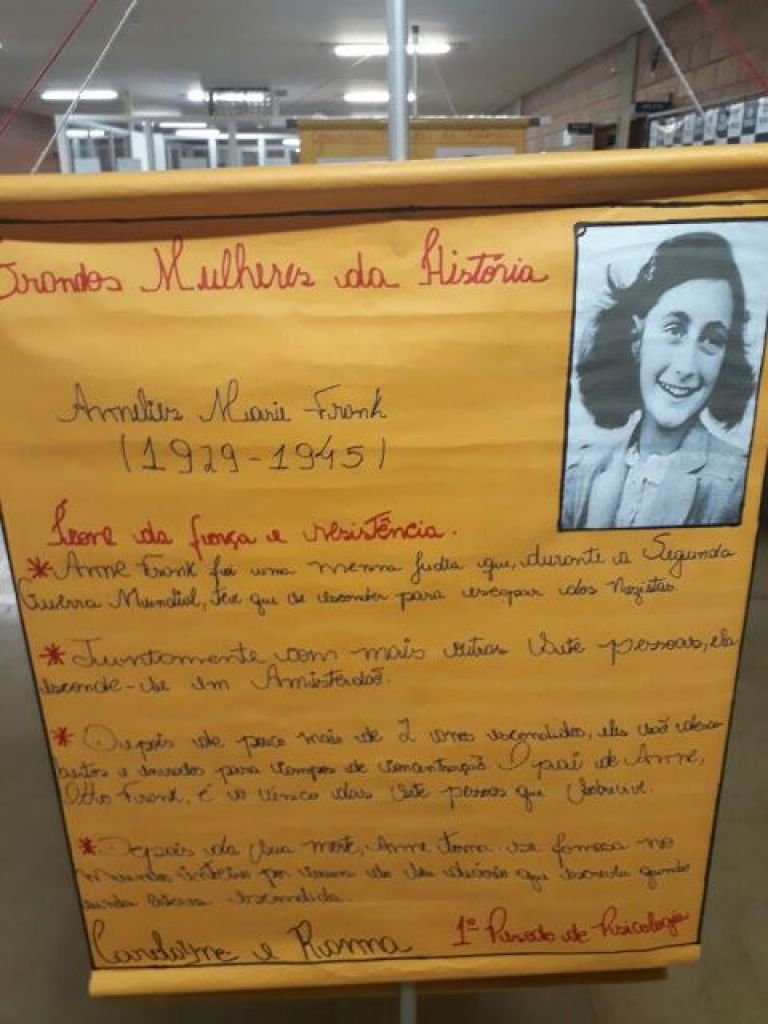 Grandes Mulheres da História
Annelies Marie Frank
(1929-1945)
Ícone da força e resistência.
* Anne Frank foi uma menina judia que, durante a Segunda
Guerra Mundial, teve que se esconder para escapar dos Nazistas.
* Juntamente com mais outras sete pessoas, ela
esconde-se em Amsterdão.
* Depois de pouco mais de 2 anos escondidos, eles são desco
bertos e levados para campos de concentração. O pai de Anne,
Otto Frank, é o único das sete pessoas que sobrevive.
* Depois da sua morte, Anne torna-se famosa no
mundo inteiro por causa do diário que escreveu quando
ainda estava escondida.
e Rianna
1º Período de Psicologia